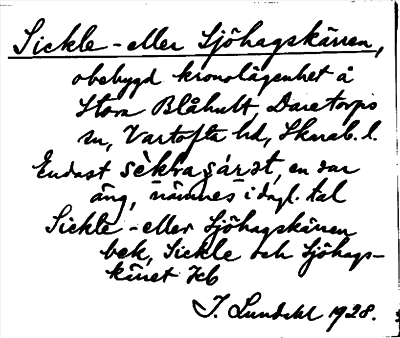 Sickle- eller Sjöhagskärren,
obebygd kronolägenhet å
Stora Blåhult, Daretorps
sn, Vartofta hd, Skarab. l.
Endast sèkragáret, en dar
äng, nämnes i dagl. tal
Sickle- eller Sjöhagskärren
bek, Sickle och Sjöhags-
käret Jeb
J. Lundahl 1928.